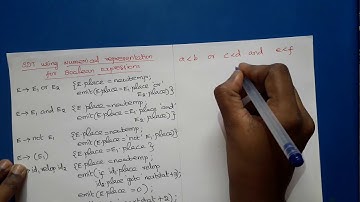 SDT using Numerical representation
for Boolean Expressions
a<b or c<d and e<f
E → E1 or E2 {E.place = newtemp;
emit(E.place '=' E1.place 'or'
E2.place)}
E → E1 and E2 {E.place = newtemp;
emit(E.place '=' E1.place 'and'
E2.place)}
E → not E1 {E.place = newtemp;
emit(E.place '=' 'not' E1.place)}
E → (E1) {E.place = E1.place }
id1 relop id2 {E.place = newtemp;
emit(if id1.place relop
id2.place goto nextstat+3);
emit(E.place = 0);
nextstat+2);